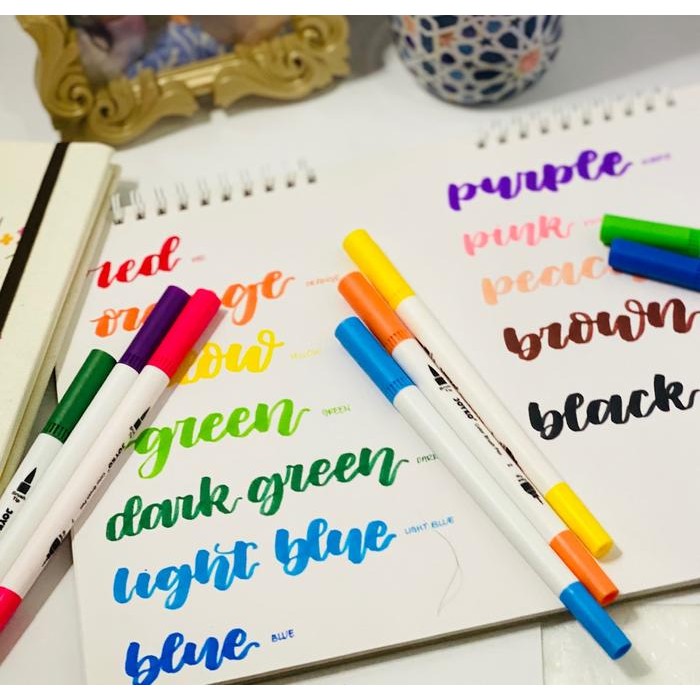 red RED
orange ORANGE
yellow YELLOW
green GREEN
dark green DARK
light blue LIGHT BLUE
blue BLUE
purple PURPLE
pink
peach
brown
black